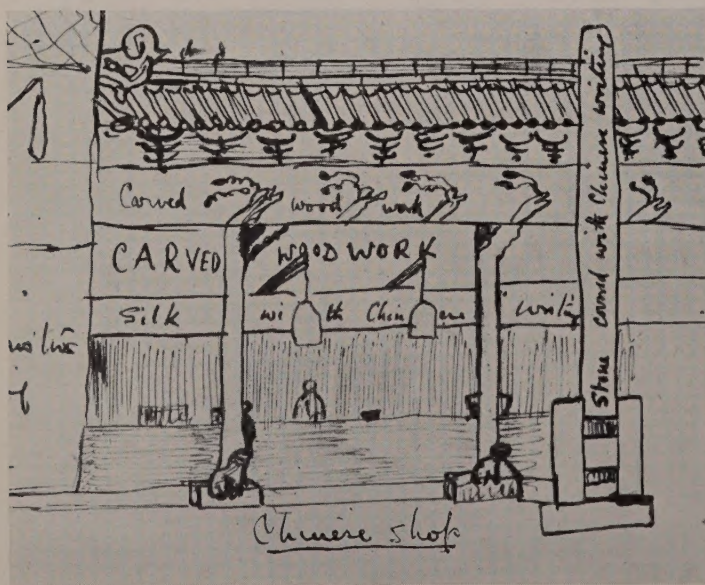 Carved wood work
CARVED WOOD WORK
Silk with Chinese writing
Stone covered with Chinese writing
Chinese shop